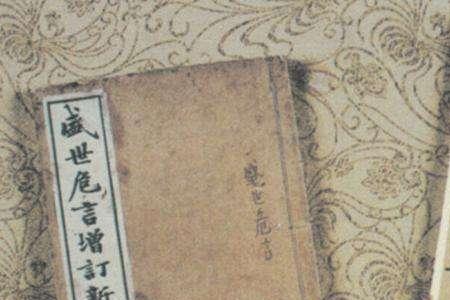 盛世危言
盛世危言增訂新